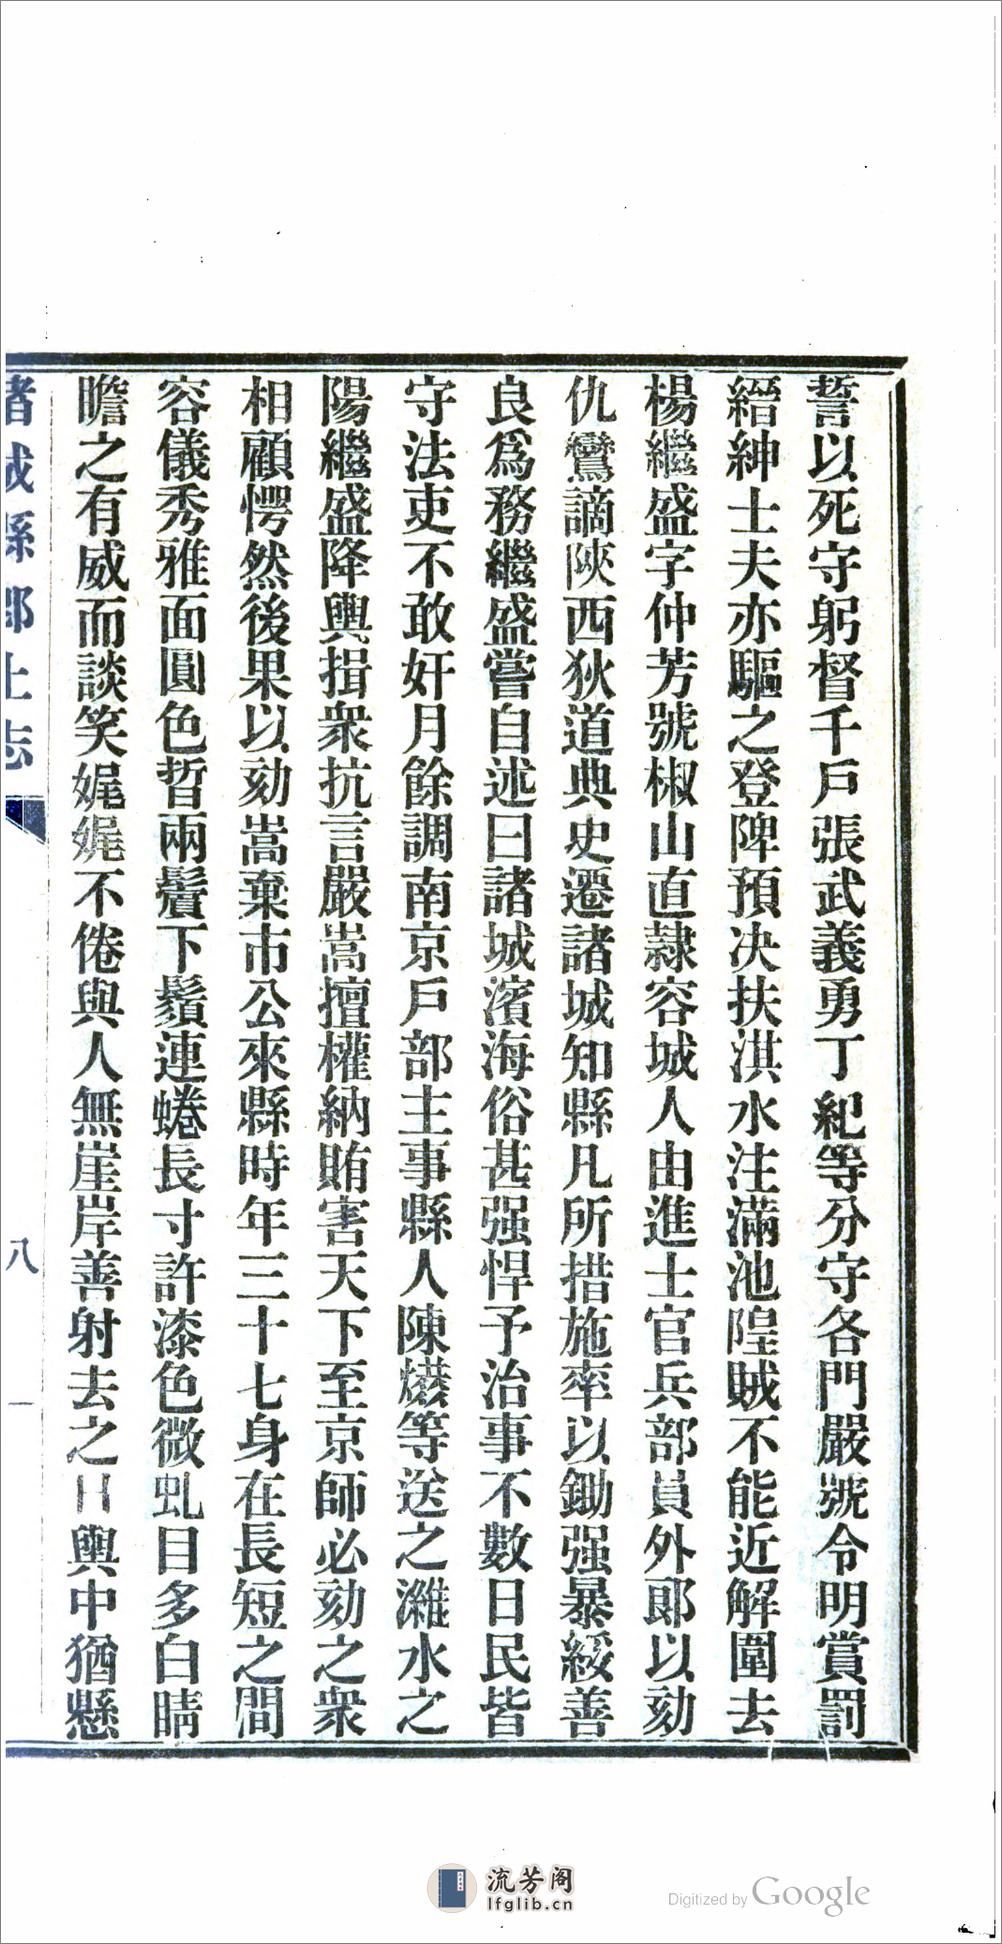 誓以死守躬督千戶張武義勇丁紀等分守各門嚴號令明賞罰
縉紳士夫亦驅之登陴預决扶淇水注滿池隍賊不能近解圍去
楊繼盛字仲芳號椒山直隷容城人由進士官兵部員外郎以劾
仇鸞謫陝西狄道典史遷諸城知縣凡所措施率以鋤强暴綏善
良爲務繼盛嘗自述曰諸城濱海俗甚强悍予治事不數日民皆
守法吏不敢奸月餘調南京戶部主事縣人陳爃等送之濰水之
陽繼盛降輿揖衆抗言嚴嵩擅權納賄害天下至京師必劾之衆
相顧愕然後果以劾嵩棄市公來縣時年三十七身在長短之間
容儀秀雅面圓色晳兩鬢下鬚連蜷長寸許漆色微虬目多白睛
瞻之有威而談笑娓娓不倦與人無崖岸善射去之日輿中猶懸
諸城縣鄉土志
八
一
流芳阁
lfglib.cn
Digitized by Google